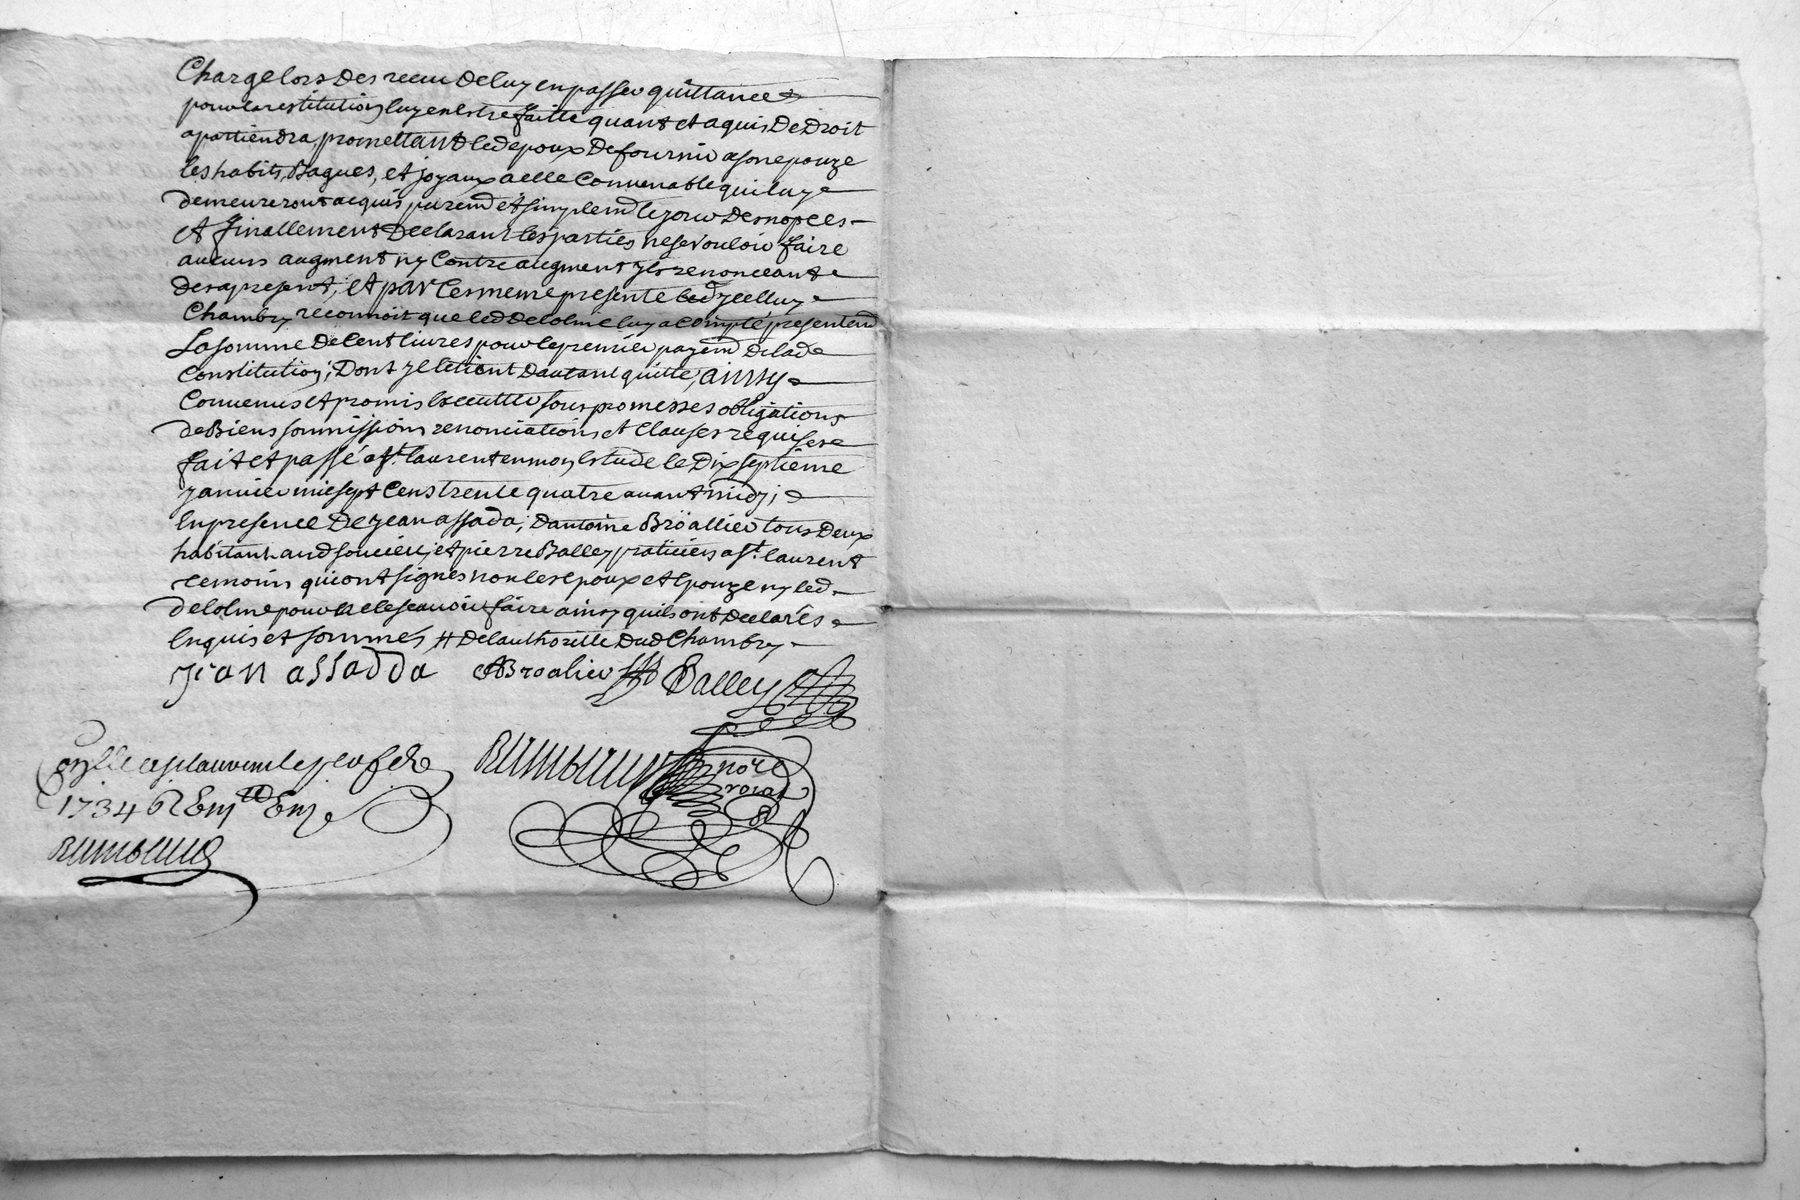 Charge lors des receu de luy en passer quittance
pour la restitution luy en estre faitte quant et a qui De Droit
apartiendra, promettant led epoux De fournir a son epouze
les habits, Bagues, et joyaux a elle Convenable qui luy
demeureront acquis purem.t et simplem.t le jour Des nopces
et finallement Declarant les parties ne se vouloir faire
aucuns augment ny Contre augment yls renonceant
des a present, et par Ces meme presente led yceluy
Chambry reconnoit que led Delolme luy a Compté presentem.t
La somme De Cent livres pour le premier payem.t De lad
Constitution; Dont yl le tient Dautant quitte, ainsy
Convenus et promis Executter sous promesses obligations
de Biens soumissions renonciations et Clauses requises
fait et passé a S.t laurent en mon Estude le Dix septième
janvier mil sept Cens trente quatre avant midy;
En presence De jean assada, Dantoine Broallier tous Deux
habitant aud et pierre Balley praticien a S.t laurent
temoins qui ont signés non les epoux et Epouze ny led
delolme pour ne le scavoir faire ainsy quils ont Declarés
Enquis et sommés # De lauthorette Dud Chambry
jean assadda ABroalier Balley
1734
nore
roial